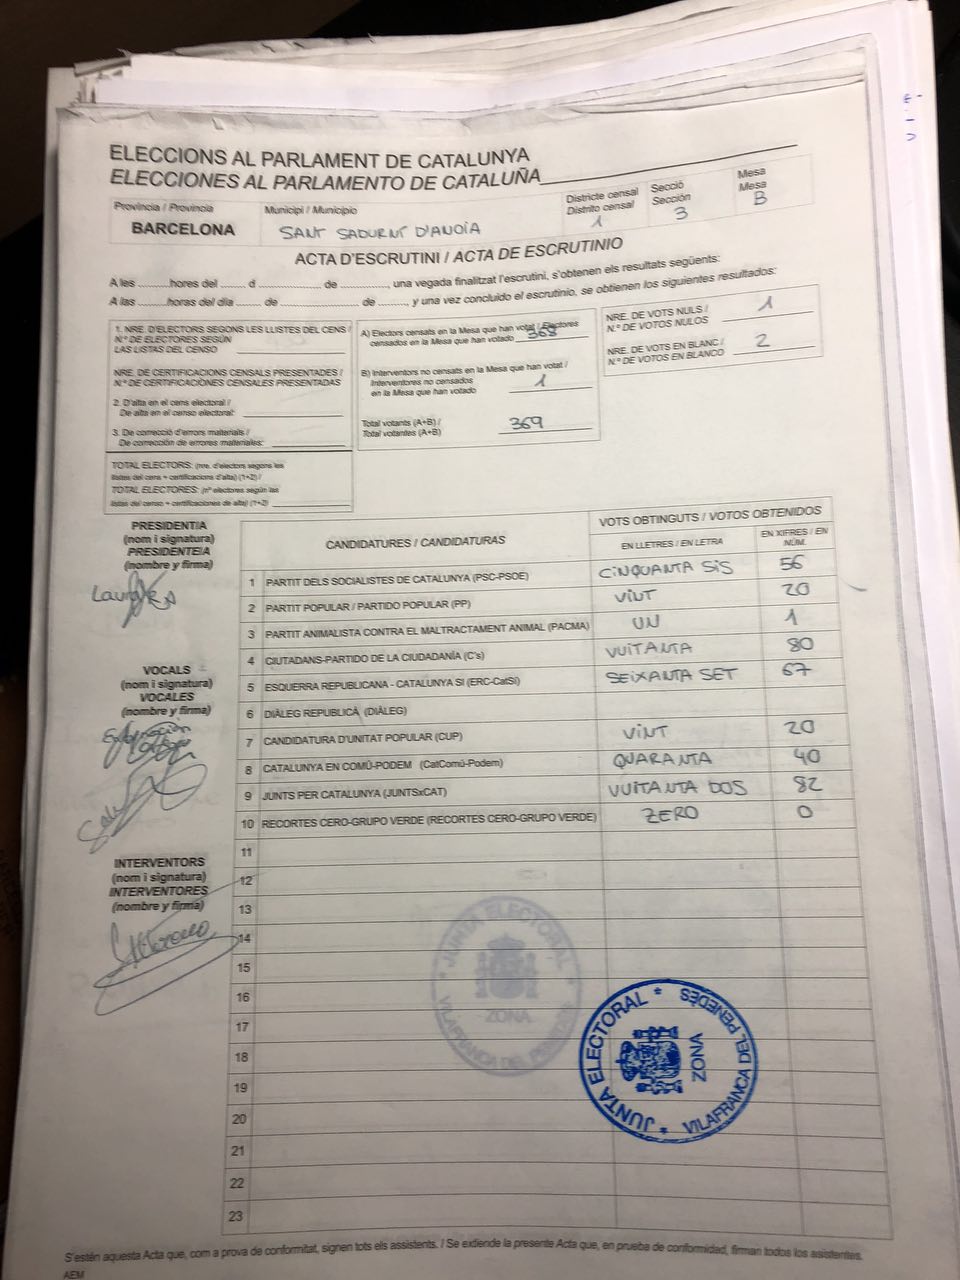 ELECCIONS AL PARLAMENT DE CATALUNYA
ELECCIONES AL PARLAMENTO DE CATALUÑA
Província / Provincia
BARCELONA
Municipi / Municipio
SANT SADURNÍ D'ANOIA
Districte censal
Distrito censal
1
Secció
Sección
3
Mesa
Mesa
B
ACTA D'ESCRUTINI / ACTA DE ESCRUTINIO
A les ...........hores del ....... d ................ de ............, una vegada finalitzat l'escrutini, s'obtenen els resultats següents:
A las ...........horas del día ....... de ................ de ........., y una vez concluido el escrutinio, se obtienen los siguientes resultados:
1. NRE. D'ELECTORS SEGONS LES LLISTES DEL CENS /
N.º DE ELECTORES SEGÚN
LAS LISTAS DEL CENSO
NRE. DE CERTIFICACIONS CENSALS PRESENTADES /
N.º DE CERTIFICACIONES CENSALES PRESENTADAS
2. D'alta en el cens electoral /
De alta en el censo electoral:
3. De correcció d'errors materials /
De corrección de errores materiales:
TOTAL ELECTORS: (nre. d'electors segons les
llistes del cens + certificacions d'alta) (1+2) /
TOTAL ELECTORES: (nº electores según las
listas del censo + certificaciones de alta) (1+2)
A) Electors censats en la Mesa que han votat / Electores
censados en la Mesa que han votado 368
B) Interventors no censats en la Mesa que han votat /
Interventores no censados
en la Mesa que han votado 1
Total votants (A+B) /
Total votantes (A+B) 369
NRE. DE VOTS NULS /
N.º DE VOTOS NULOS 1
NRE. DE VOTS EN BLANC /
N.º DE VOTOS EN BLANCO 2
PRESIDENT/A
(nom i signatura)
PRESIDENTE/A
(nombre y firma)
VOCALS
(nom i signatura)
VOCALES
(nombre y firma)
INTERVENTORS
(nom i signatura)
INTERVENTORES
(nombre y firma)
CANDIDATURES / CANDIDATURAS
VOTS OBTINGUTS / VOTOS OBTENIDOS
EN LLETRES / EN LETRA
EN XIFRES / EN NÚM.
1 PARTIT DELS SOCIALISTES DE CATALUNYA (PSC-PSOE) CINQUANTA SIS 56
2 PARTIT POPULAR / PARTIDO POPULAR (PP) VINT 20
3 PARTIT ANIMALISTA CONTRA EL MALTRACTAMENT ANIMAL (PACMA) UN 1
4 CIUTADANS-PARTIDO DE LA CIUDADANÍA (C's) VUITANTA 80
5 ESQUERRA REPUBLICANA - CATALUNYA SÍ (ERC-CatSí) SEIXANTA SET 67
6 DIÀLEG REPUBLICÀ (DIÀLEG)
7 CANDIDATURA D'UNITAT POPULAR (CUP) VINT 20
8 CATALUNYA EN COMÚ-PODEM (CatComú-Podem) QUARANTA 40
9 JUNTS PER CATALUNYA (JUNTSxCAT) VUITANTA DOS 82
10 RECORTES CERO-GRUPO VERDE (RECORTES CERO-GRUPO VERDE) ZERO 0
11
12
13
14
15
16
17
18
19
20
21
22
23
JUNTA ELECTORAL
ZONA
VILAFRANCA DEL PENEDÈS
JUNTA ELECTORAL
ZONA
VILAFRANCA DEL PENEDÈS
S'estén aquesta Acta que, com a prova de conformitat, signen tots els assistents. / Se extiende la presente Acta que, en prueba de conformidad, firman todos los asistentes.
AEM